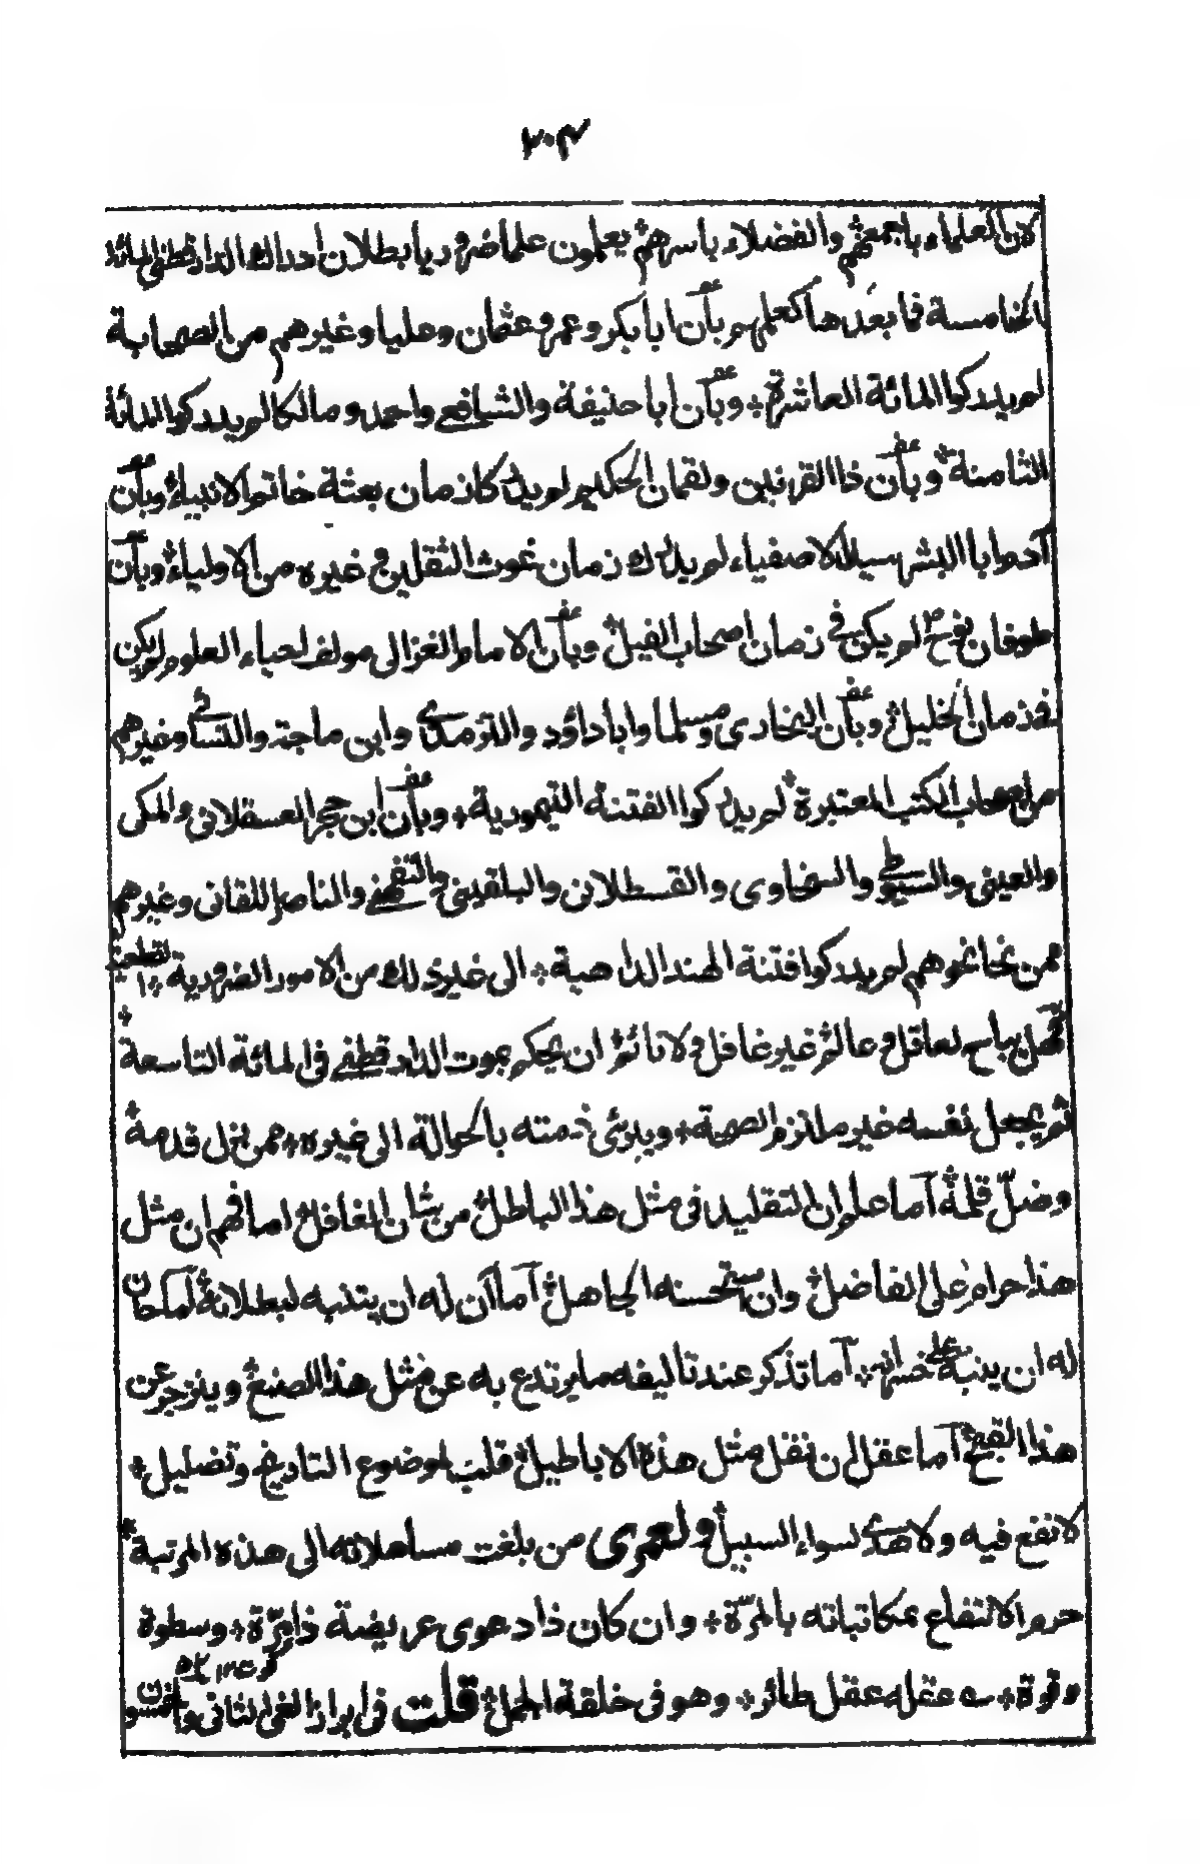 ٢٠٣
لان العلماء باجمعهم والفضلاء باسرهم يعلمون علما ضروريا بطلان ادراك الدارقطنى المائة
الخامسة فما بعدها كعلمهم بأن ابا بكر وعمر وعثمان وعليا وغيرهم من الصحابة
لم يدركوا المائة العاشرة وبأن ابا حنيفة والشافعي واحمد ومالكا لم يدركوا المائة
الثامنة وبأن ذا القرنين ولقمان الحكيم لم يدركا زمان بعثة خاتم الانبياء وبأن
آدم ابا البشر سيد الاصفياء لم يدرك زمان غوث الثقلين وغيره من الاولياء وبأن
طوفان نوح لم يكن في زمان اصحاب الفيل وبأن الامام الغزالى مولف احياء العلوم لم يكن
فى زمان الخليل وبأن البخارى ومسلما وابا داؤد والترمذي وابن ماجة والنسائي وغيرهم
من اصحاب الكتب المعتبرة لم يدركوا الفتنة التيمورية وبأن ابن حجر العسقلانى والمكى
والعينى والسيوطي والسخاوى والقسطلانى والبلقينى والتفهني والناصر اللقانى وغيرهم
ممن نحا نحوهم لم يدركوا فتنة الهند الداهية الى غير ذلك من الامور الضرورية القطعية
فهل يباح لعاقل وعالم غير غافل ولا نائم ان يحكم بموت الدارقطني فى المائة التاسعة
ثم يجعل نفسه غير ملتزم الصحة ويبرئ ذمته بالحوالة الى غيره ممن زل قدمه
وضل قلمه آما علم ان التقليد فى مثل هذا الباطل من شان الغافل اما فهم ان مثل
هذا حرام على الفاضل وان يستحسنه الجاهل آما آن له ان يتنبه لبطلانه آما كان
له ان ينبه على خسرانه آما تذكر عند تاليفه ما يرتدع به عن مثل هذا الصنع وينزجر عن
هذا القبيح آما عقل ان نقل مثل هذه الاباطيل قلب لموضوع التاريخ وتضليل
لا نفع فيه ولا هدى لسواء السبيل ولعمرى من بلغت مساهلاته الى هذه المرتبة
حرم الانتفاع بمكاتباته بالمرة وان كان ذا دعوى عريضة ذا مرة وسطوة
وقوة عقله عقل طائر وهو فى خلقة الجمل قلت فى ابراز الغى الثانى والخمسون